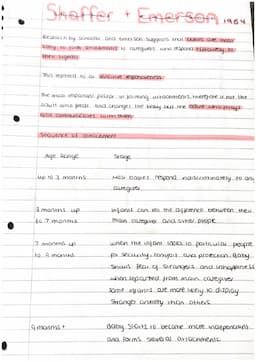 Shaffer + Emerson 1964
Research by Schaffer and Emerson suggests that babies are most
likely to form attachments to caregivers who respond accurately to
their signals
This referred to as sensitive responsiveness
The most important factor in forming attachments therefore is not the
adult who feeds and changes the baby but the adult who plays
and communicates with them
Sequence of attachment
Age Range Stage
Up to 3 months Most babies respond indiscriminately to any
caregiver
3 months up Infants can tell the difference between their
to 7 months main caregiver and other people
7 months up when the infant looks to particular people
to 9 months for security, comfort and protection. Baby
shows fear of strangers and unhappiness
when separated from main caregiver
some infants are more likely to display
stranger anxiety than others
9 months + Baby starts to become more independent
and forms several attachments